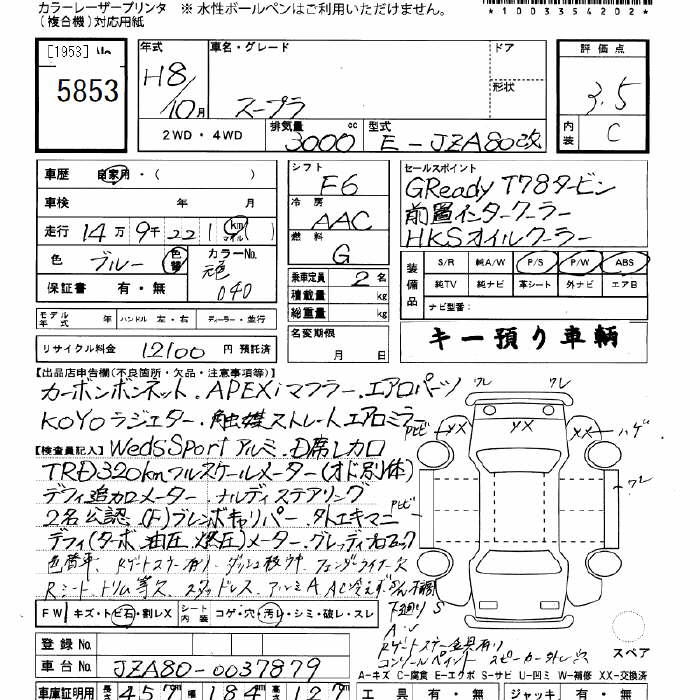 カラーレーザープリンタ ※ 水性ボールペンはご利用いただけません。
（複合機）対応用紙
*1003354202*
[1953]
5853
年式 H8/10月
車名・グレード スープラ
ドア
形状
評価点 3.5
内装 C
2WD・4WD
排気量 3000 cc
型式 E-JZA80改
車歴 自家用・( )
車検 年 月
走行 14万9千221 km マイル
色 ブルー 色替
カラーNo. 元色 040
保証書 有・無
シフト F6
冷房 AAC
燃料 G
乗車定員 2名
積載量 kg
総重量 kg
セールスポイント
GReady T78タービン
前置インタークーラー
HKSオイルクーラー
装備品
S/R 純A/W P/S P/W ABS
純TV 純ナビ 革シート 外ナビ エアB
ナビ型番：
モデル年式 年 ハンドル 左・右 ディーラー・並行
名変期限 月 日
キー預り車輌
リサイクル料金 12100 円 預託済
【出品店申告欄(不良箇所・欠品・注意事項等)】
カーボンボンネット.APEXiマフラー.エアロパーツ
KOYOラジエター.触媒ストレート エアロミラー
【検査員記入】WedsSportアルミ.D席レカロ
TRD320kmフルスケールメーター(オド別体)
デフィ追加メーター ナルディステアリング
2名公認.(F)ブレンボキャリパー.外エキマニ
デフィ(ターボ.油圧.燃圧)メーター.
色替車.
Rシート.トリム等欠. スタッドレス.
FW キズ・トビ石・割レX
シート内装 コゲ・穴・汚レ・シミ・破レ・スレ
ワレ
ワレ
トビ
XX
XX
XX
ハゲ
ワレ
トビ
下廻りS
コンソールペイント
スペア
登録No.
車台No. JZA80-0037879
A-キズ C-腐食 E-エクボ S-サビ U-凹ミ W-補修 XX-交換済
車庫証明用 長さ 457 幅 184 高さ 127
工具 有・無 ジャッキ 有・無